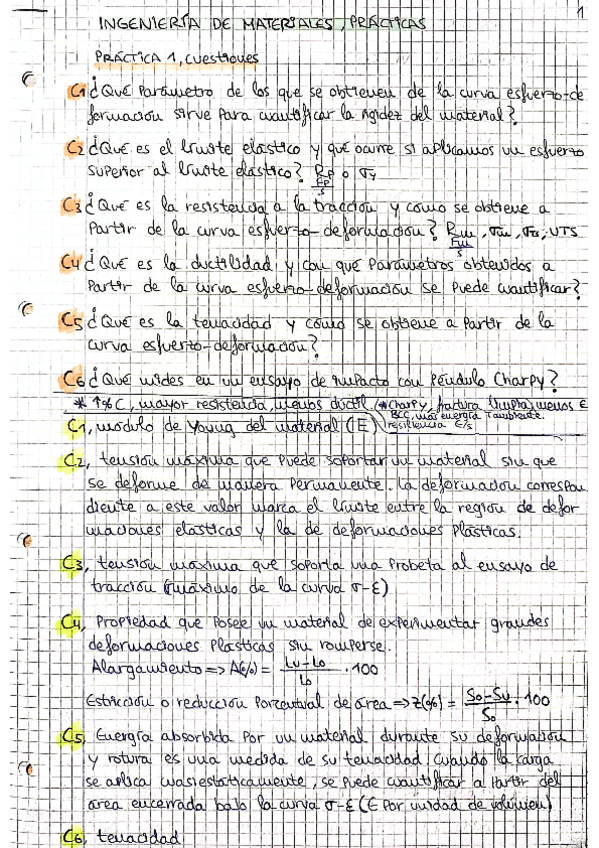 1
INGENIERÍA DE MATERIALES, PRÁCTICAS
PRÁCTICA 1, cuestiones
C1 ¿Qué parámetro de los que se obtienen de la curva esfuerzo-de
formación sirve para cuantificar la rigidez del material?
C2 ¿Qué es el límite elástico y qué ocurre si aplicamos un esfuerzo
superior al límite elástico? Rp o σy
Fp
s
C3 ¿Qué es la resistencia a la tracción y cómo se obtiene a
partir de la curva esfuerzo-deformación? Rm, σm, , UTS
Fm
s
C4 ¿Qué es la ductilidad y con qué parámetros obtenidos a
partir de la curva esfuerzo-deformación se puede cuantificar?
C5 ¿Qué es la tenacidad y cómo se obtiene a partir de la
curva esfuerzo-deformación?
C6 ¿Qué mides en un ensayo de impacto con péndulo Charpy?
* ↑%C, mayor resistencia, menos dúctil (*Charpy, fractura menos E
BCC, más energía
C1, módulo de Young del material (E) resiliencia E/s
C2, tensión máxima que puede soportar un material sin que
se deforme de manera permanente. La deformación correspon
diente a este valor marca el límite entre la región de defor
maciones elásticas y la de deformaciones plásticas.
C3, tensión máxima que soporta una probeta al ensayo de
tracción (máximo de la curva σ-ε)
C4, Propiedad que posee un material de experimentar grandes
deformaciones plásticas sin romperse.
Alargamiento => A(%) = Lu-Lo / Lo · 100
Estricción o reducción porcentual de área => Z(%) = So-Su / So · 100
C5, Energía absorbida por un material durante su deformación
y rotura es una medida de su tenacidad, cuando la carga
se aplica cuasiestáticamente, se puede cuantificar a partir del
área encerrada bajo la curva σ-ε (E por unidad de volumen)
C6, tenacidad